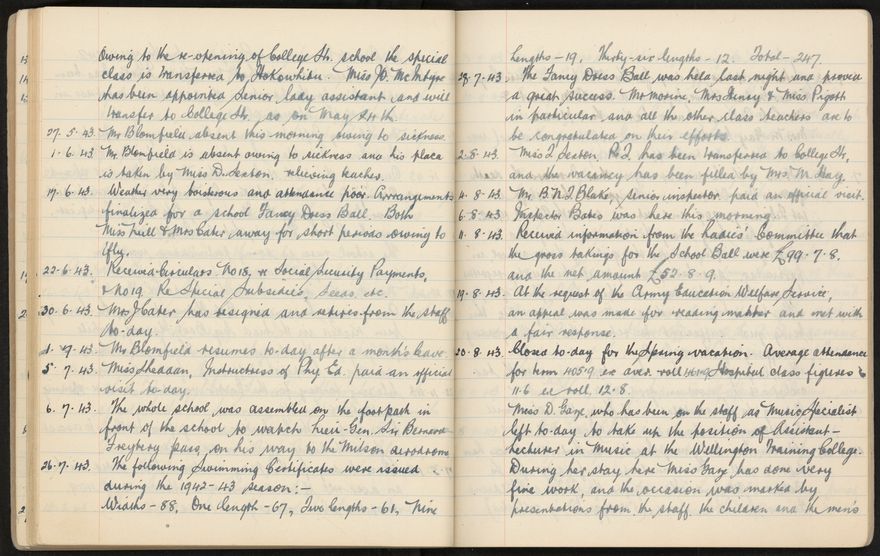 owing to the re-opening of College St. school the special
class is transferred to Hokowhitu. Miss D. McIntyre
has been appointed Senior lady assistant and will
transfer to College St. as on May 24th.
27.5.43. Mr Blomfield absent this morning owing to sickness.
1.6.43. Mr Blomfield is absent owing to sickness and his place
is taken by Miss D. Seaton, relieving teacher.
17.6.43. Weather very boisterous and attendance poor. Arrangements
finalized for a school Fancy Dress Ball. Both
Miss Hill & Mrs Cater away for short periods owing to
'flu.
22.6.43. Received Circulars No 18, re Social Security Payments,
& No 19 Re Special Subsidies, Seeds, etc.
30.6.43. Mrs J Cater has resigned and retires from the staff
to-day.
1.7.43. Mr Blomfield resumes to-day after a month's leave.
5.7.43. Miss Sheddan, Instructress of Phy Ed. paid an official
visit to-day.
6.7.43. The whole school was assembled on the footpath in
front of the school to watch Lieu-Gen. Sir Bernard
Freyberg pass, on his way to the Milson aerodrome
26.7.43. The following Swimming Certificates were issued
during the 1942-43 season:-
Widths-88, One length-67, Two lengths-61, Nine
lengths-19, Thirty-six lengths-12. Total-247.
28.7.43 The Fancy Dress Ball was held last night and proved
a great success. Mr Morine, Mrs Henry & Miss Pigott
in particular and all the other class teachers are to
be congratulated on their efforts.
2.8.43. Miss J. Seaton, R.J. has been transferred to College St,
and the vacancy has been filled by Mrs. M. Hay.
4.8.43. Mr. B.N.J. Blake, senior inspector paid an official visit.
6.8.43. Inspector Bates was here this morning
11.8.43. Received information from the Ladies' Committee that
the gross takings for the School Ball were £99.7.8.
and the net amount £52.8.9.
19.8.43. At the request of the Army Education Welfare Service,
an appeal was made for reading matter and met with
a fair response.
20.8.43. Closed to-day for the Spring vacation. Average attendance
for term 405.9 ex aver. roll Hospital class figures
11.6 ex roll 12.8.
Miss D. Gaze, who has been on the staff as Music Specialist
left to-day to take up the position of Assistant-
Lecturer in Music at the Wellington Training College.
During her stay here Miss Gaze has done very
fine work, and the occasion was marked by
presentations from the staff, the children and the men's